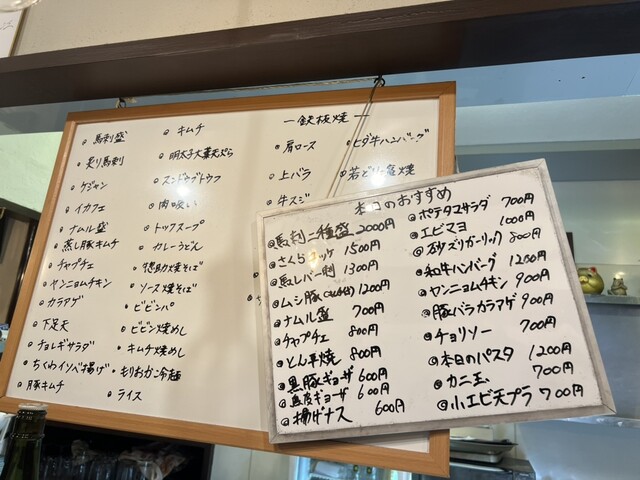 馬刺盛
炙り馬刺
ケジャン
イカフェ
ナムル盛
蒸し豚キムチ
チャプチェ
ヤンニョムチキン
カラアゲ
下足天
チョレギサラダ
ちくわイソベ揚げ
豚キムチ
キムチ
明太子大葉天ぷら
スンドゥブトウフ
肉吸い
トックスープ
カレーうどん
ソース焼そば
ビビンバ
ビビン焼めし
キムチ焼めし
もりおか冷麺
ライス
ー鉄板焼ー
肩ロース
上バラ
牛スジ
ヒダ牛ハンバーグ
若どり塩焼
本日のおすすめ
馬刺二種盛 2000円
さくらユッケ 1500円
馬レバー刺 1300円
ムシ豚 1200円
ナムル盛 700円
チャプチェ 800円
とん平焼 800円
黒豚ギョーザ 600円
鳥皮ギョーザ 600円
揚げナス 600円
ポテタマサラダ 700円
エビマヨ 1000円
砂ズリガーリック 800円
和牛ハンバーグ 1200円
ヤンニョムチキン 900円
豚バラカラアゲ 900円
チョリソー 700円
本日のパスタ 1200円
カニ玉 700円
小エビ天プラ 700円